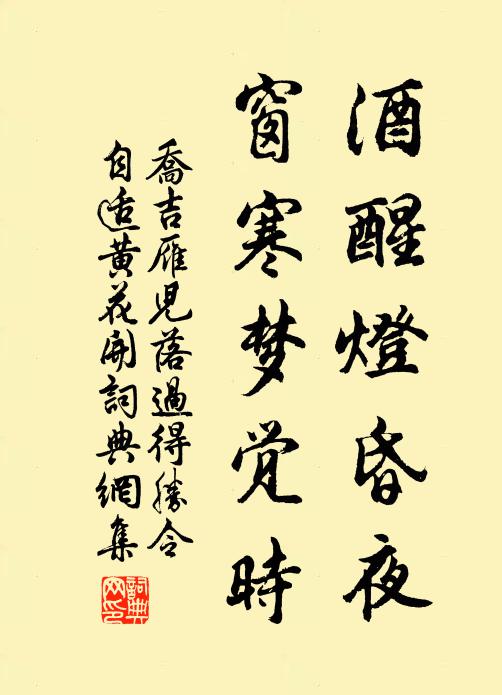 酒醒燈昏夜
窗寒梦觉時
喬吉雁児落過得勝令
自适黄花開詞典網集
詞典网印